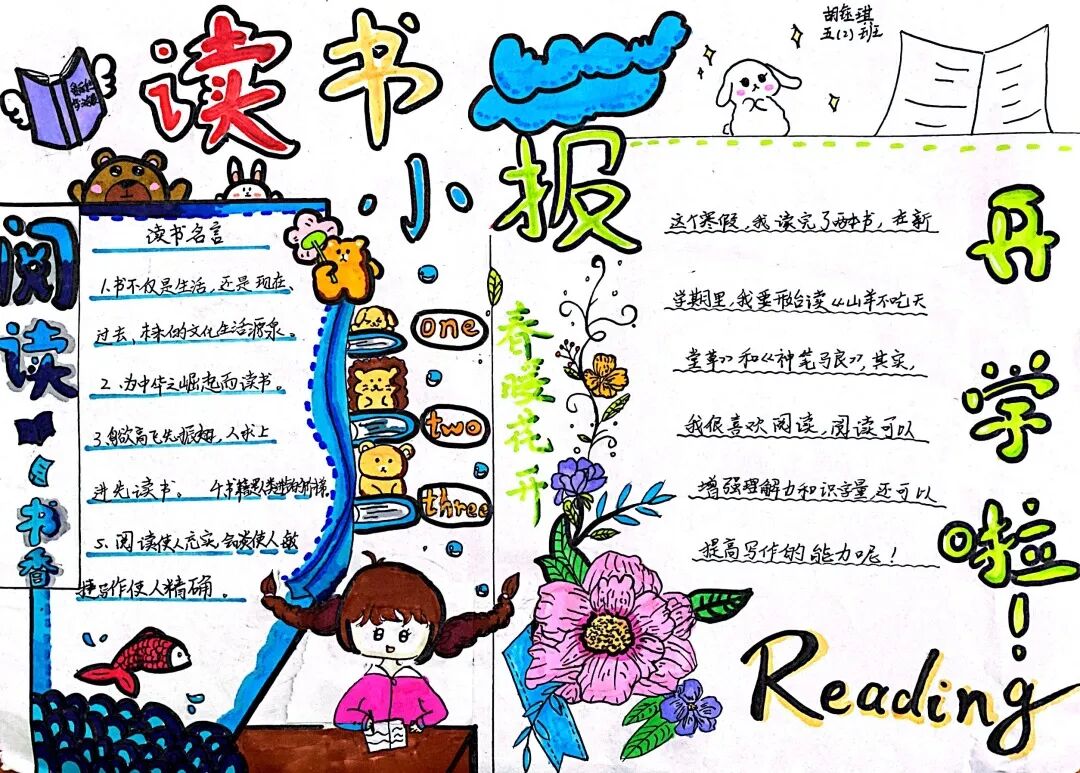 读书
小报
五(2)班
阅读
书香
读书名言
1.书不仅是生活,还是现在、
过去、未来的文化生活源泉。
2.为中华之崛起而读书。
3.鸟欲高飞先振翅,人求上
进先读书。 4.书籍是人类进步的阶梯
5.阅读使人充实,会谈使人敏
捷写作使人精确。
one
two
three
春暖花开
这个寒假,我读完了两本书,在新
学期里,我要开始读《山羊不吃天
堂草》和《神笔马良》,其实,
我很喜欢阅读,阅读可以
增强理解力和识字量,还可以
提高写作的能力呢!
开学啦!
Reading